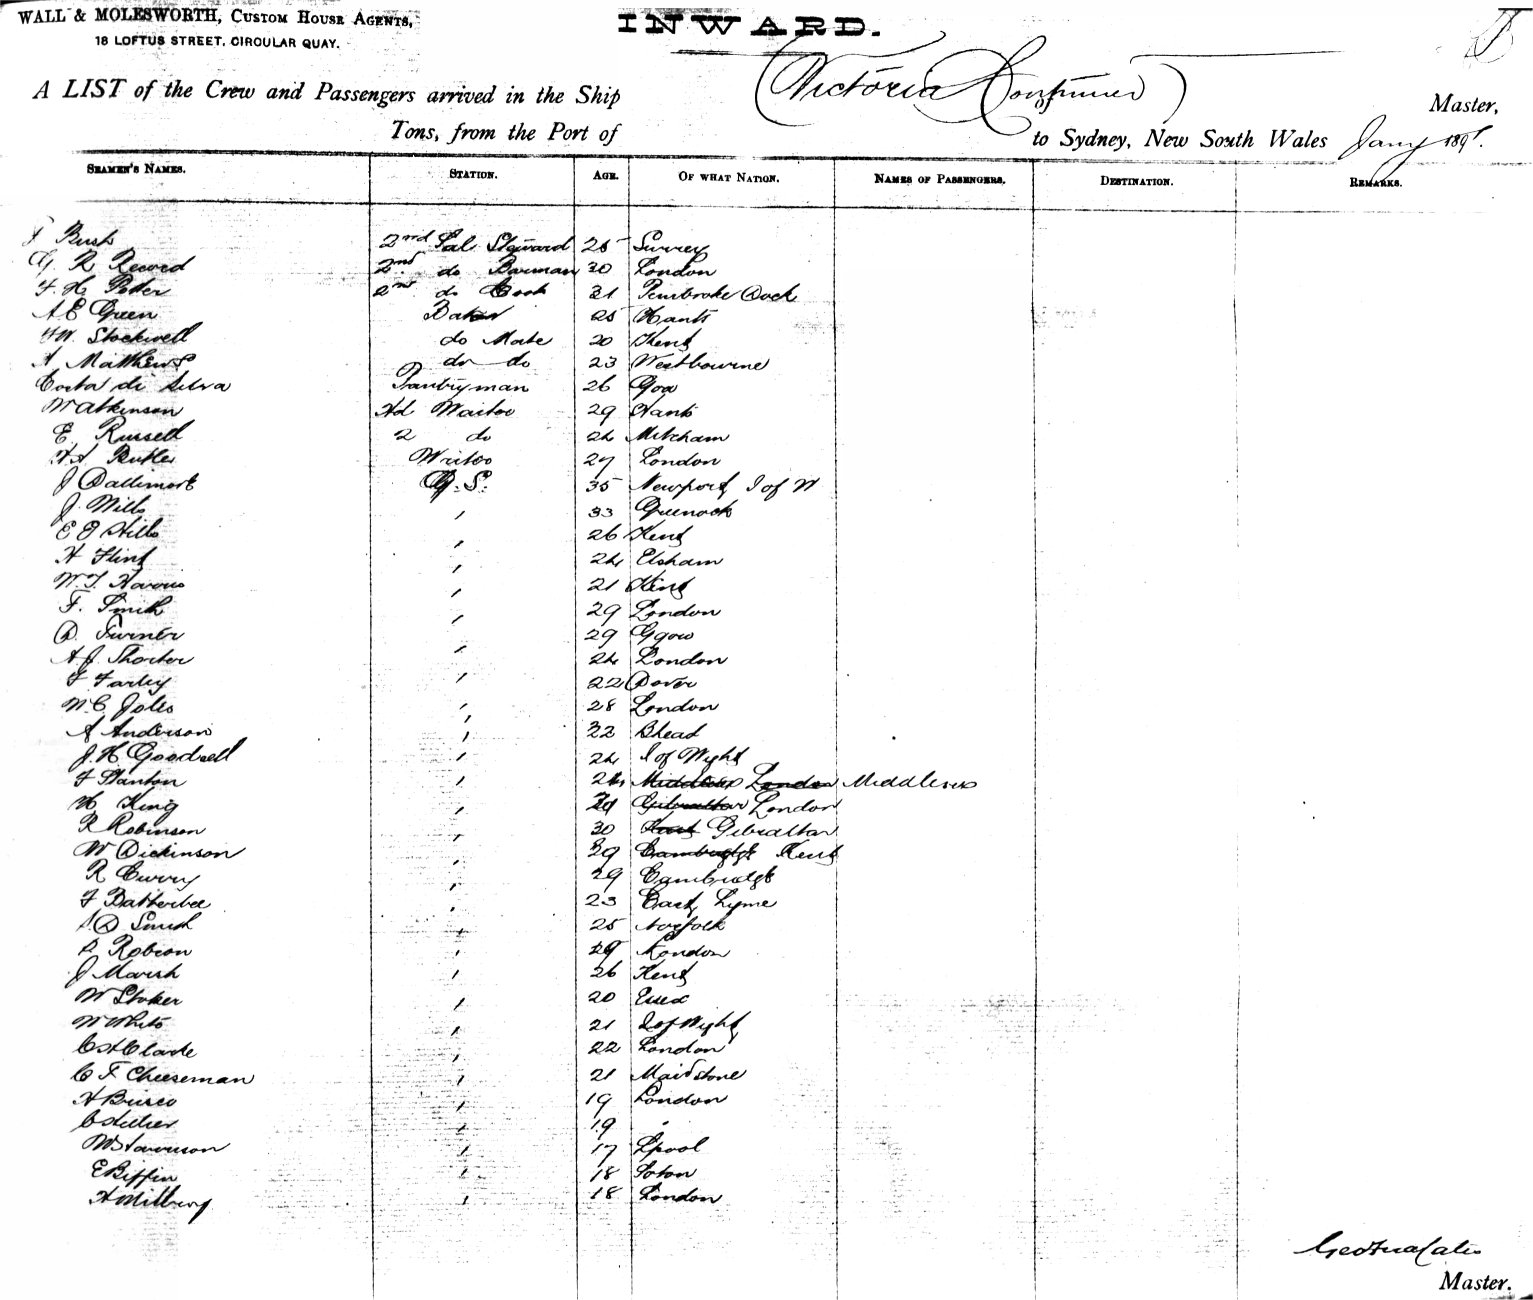 WALL & MOLESWORTH, CUSTOM HOUSE AGENTS,
18 LOFTUS STREET, CIRCULAR QUAY.
INWARD.
A LIST of the Crew and Passengers arrived in the Ship (Victoria Continued) of Master,
Tons, from the Port of to Sydney, New South Wales Jany 189
SEAMEN'S NAMES. STATION. AGE. OF WHAT NATION. NAMES OF PASSENGERS. DESTINATION. REMARKS.
Bush 2nd Sal Steward 25 Surrey
G R Record 2nd do Barman 30 London
F. H. Potter 2nd do Cook 31 Pembroke Dock
A E Green Baker 25 Hants
Stockwell do Mate 20 Kent
A Matthews do do 23 Westbourne
Costa di Silva Pantryman 26 Goa
W Atkinson Hd Waiter 29 Hants
E. Russell 2 do 24 Mitcham
Butler Writer 27 London
J Dallimore G. S. 35 Newport I of W
J. Mills " 33 Greenock
E J Hills " 26 Kent
H Flint " 24 Elsham
W. T. Harris " 21 Kent
F. Smith " 29 London
D. Turner " 29 Ggow
A J. Shorter " 24 London
F Farley " 22 Dover
W. C. Joles " 28 London
A Anderson " 22 Bhead
J. H. Goodsell " 24 I of Wight
F Stanton " 24 Middlesex London Middlesex
H King " Gibraltar London
R Robinson " 30 Kent Gibraltar
W Dickinson " 29 Cambridge Kent
R Curry " 29 Cambridge
F Batterbee " 23 East Lyme
D Smith " 25 Norfolk
Robson " 29 London
J Marsh " 26 Kent
W Stoker " 20 Essex
W White " 21 I of Wight
C H Clarke " 22 London
C F Cheeseman " 21 Maidstone
H Brisco " 19 London
" 19 "
" 17 Lpool
E Biffin " 18 Soton
A Milbury " 18 London
Master.